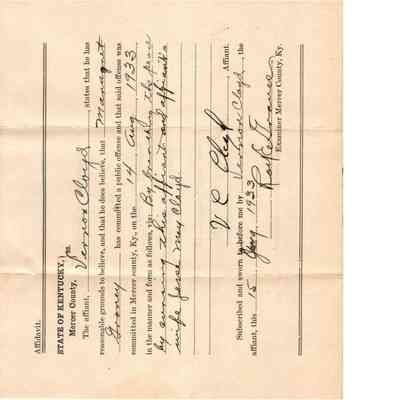 Affidavit.
STATE OF KENTUCKY, } ss.
Mercer County,
The affiant, Vernon Cloyd, states that he has
reasonable grounds to believe, and that he does believe, that Margaret
has committed a public offense and that said offense was
committed in Mercer county, Ky., on the 14 Aug 1933
in the manner and form as follows, viz: By breaching the peace
by cursing this affiant and affiant's
wife Jessie May Cloyd
V C Cloyd Affiant.
Subscribed and sworn to before me by Vernon Cloyd, the
affiant, this 15 Aug 1933
Examiner Mercer County, Ky.